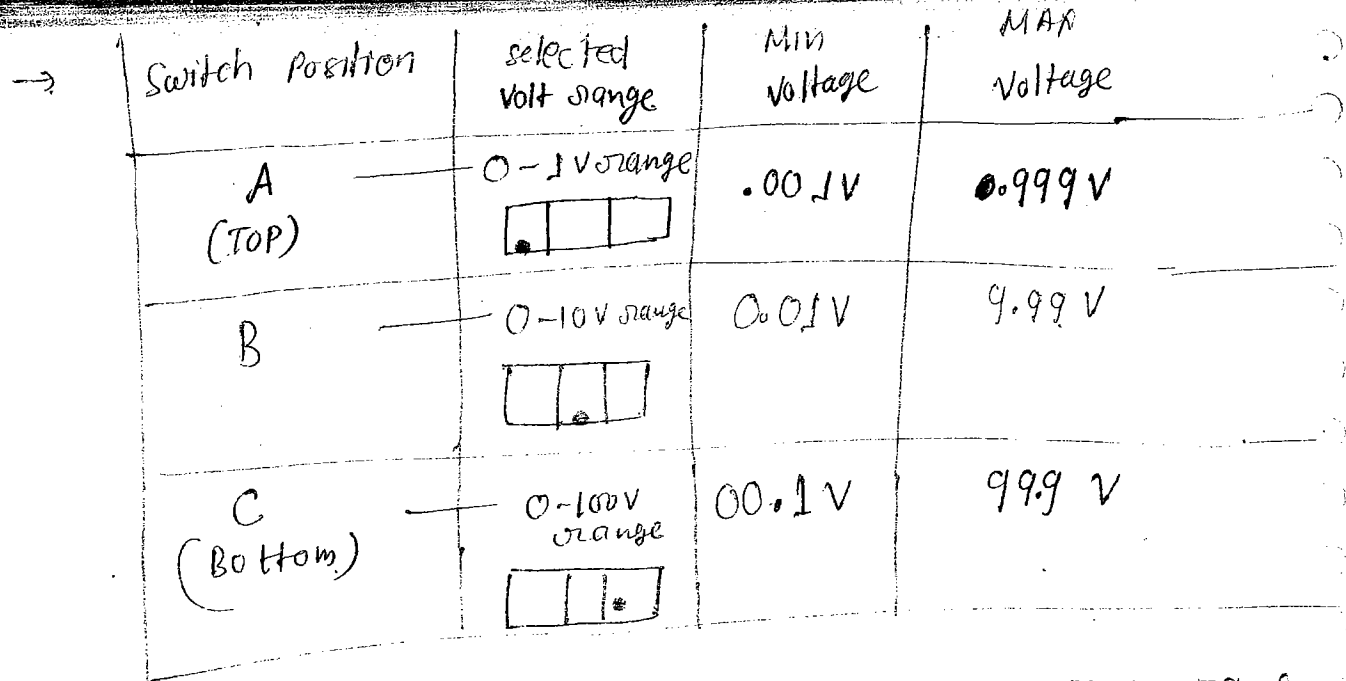 → Switch Position
selected
volt range
Min
Voltage
MAX
Voltage
A
(TOP)
0-1V range
.001V
0.999V
B
0-10V range
0.01V
9.99 V
C
(Bottom)
0-100V
range
00.1V
99.9 V